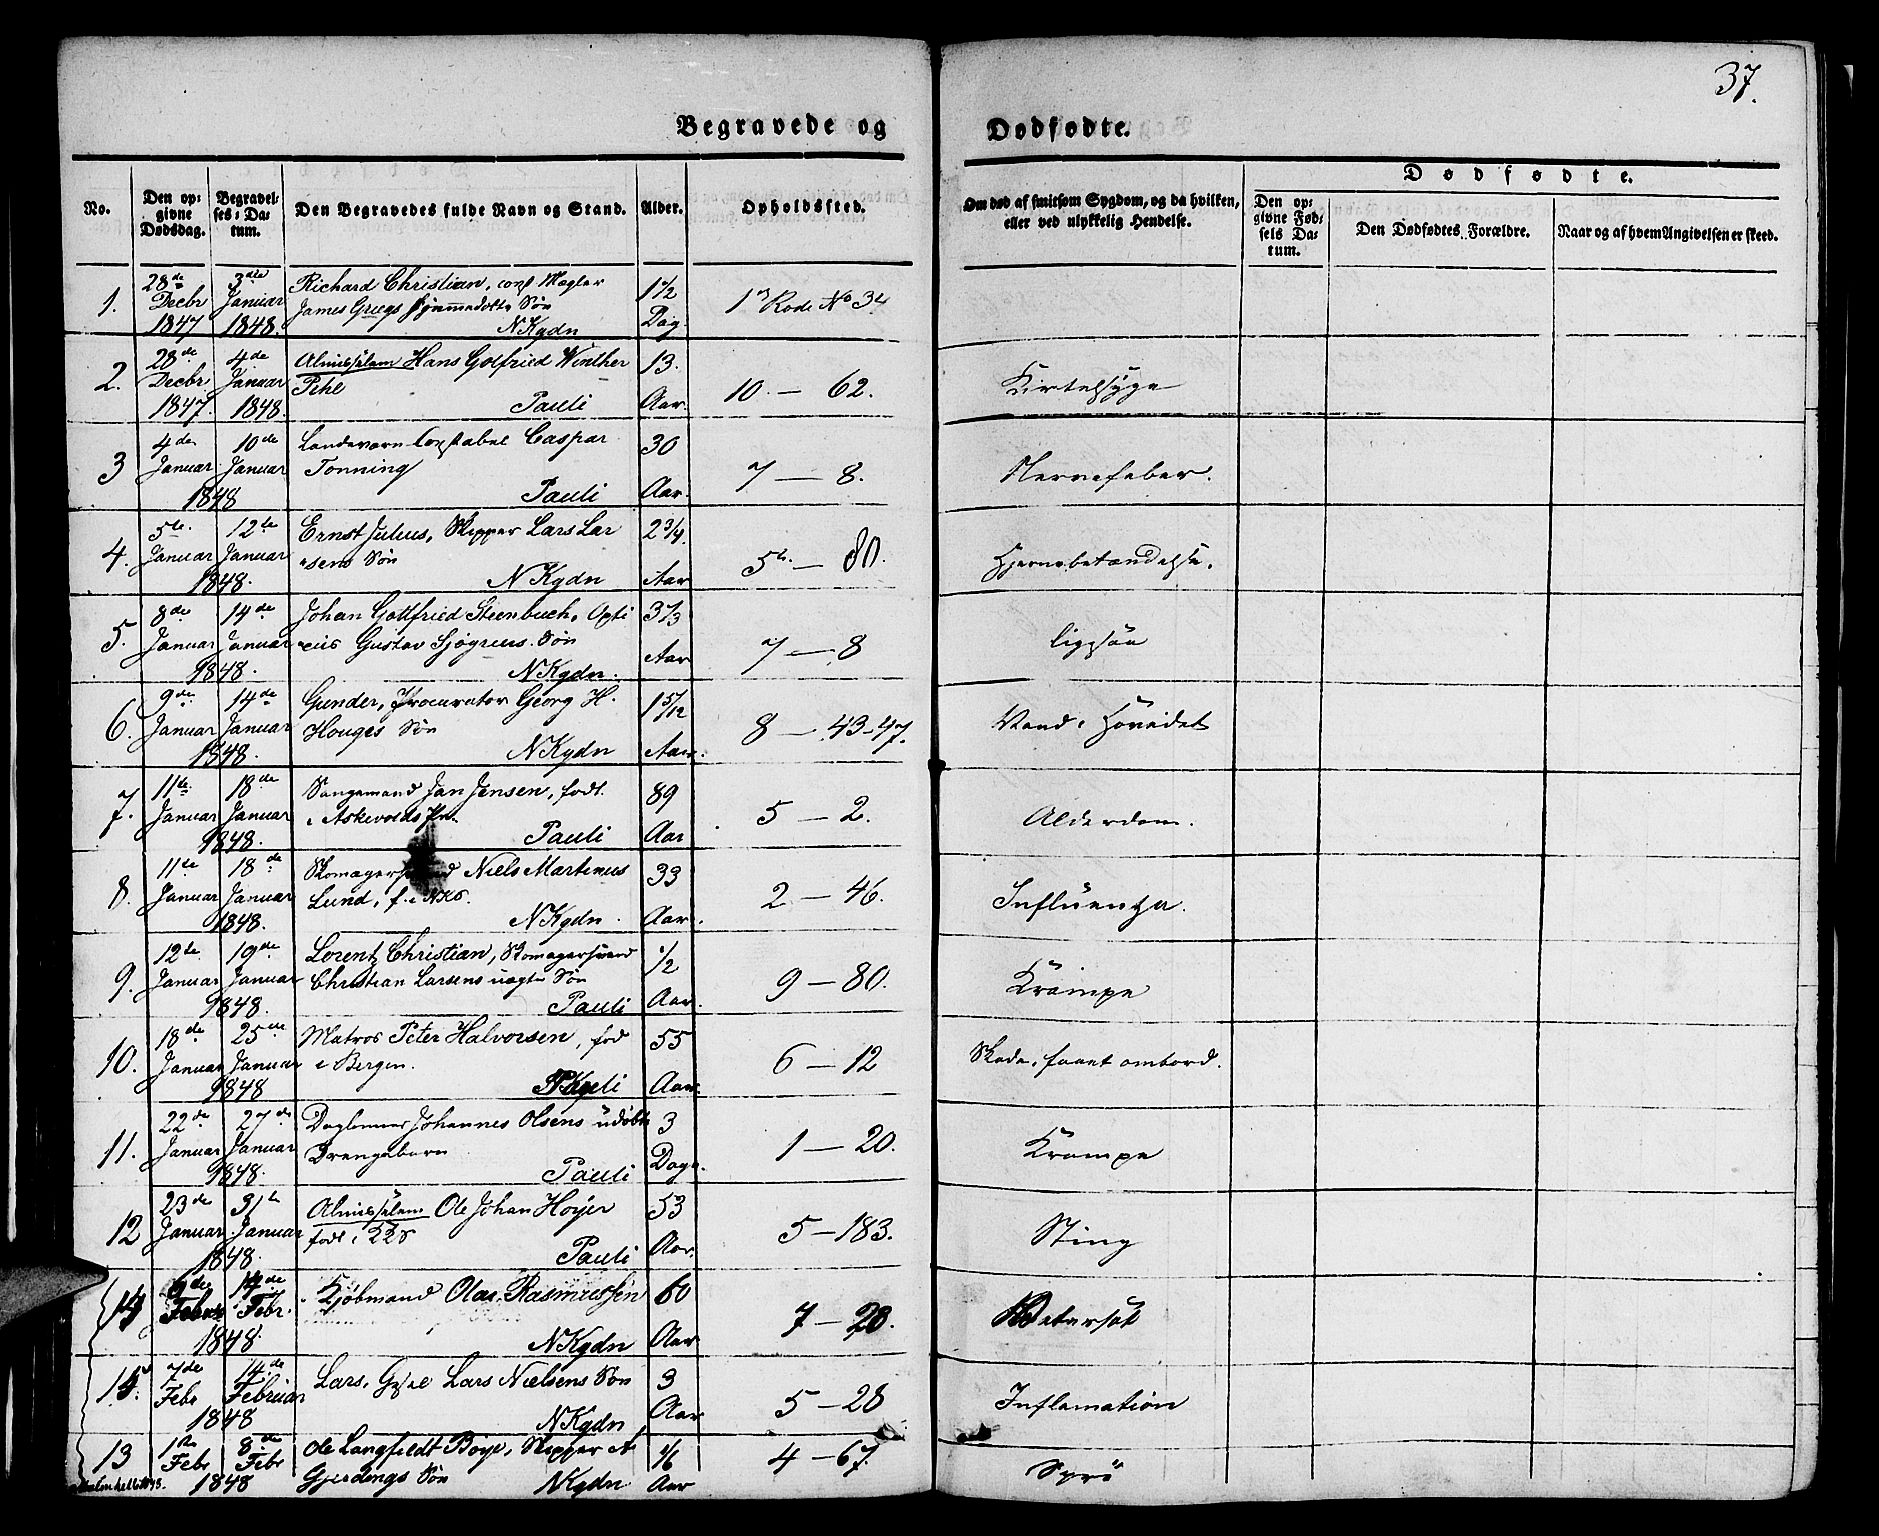 37.
Begravede og Dødfødte.
No.
Den opgivne Dødsdag.
Begravelses-Datum.
Den Begravedes fulde Navn og Stand.
Alder.
Opholdssted.
Om død af smitsom Sygdom, og da hvilken, eller ved ulykkelig Hendelse.
Dødfødte.
Den opgivne Fødsels Datum.
Den Dødfødtes Forældre.
Naar og af hvem Angivelsen er skeed.
1. 28de Decbr 1847 3die Januar 1848. Richard Christian, const Mægler
James Griegs hjemmedøbte Søn
NKgdn 1½ Dag. 1ste Rode No 34
2. 28de Decbr 1847. 4de Januar 1848. Almisselem Hans Gotfried Winther
Pihl
Pauli 13. Aar. 10. — 62. Kirtelsyge
3 4de Januar 10de Januar 1848 Landeværn Constabel Caspar
Tonning
Pauli 30 Aar. 7 — 8. Nervefeber.
4. 5te Januar 12te Januar 1848. Ernst Julius, Skipper Lars Lar
sens Søn
NKgdn 2 3/4. Aar 5te — 80. Hjernebetændelse.
5. 8de Januar 14de Januar 1848. Johan Gottfried Steenbuch, Opti
cus Gustav Sjøgrens Søn
NKgdn. Aar 7 — 8
6. 9de Januar 14de Januar 1848. Gunder, Procurator Georg H.
Houges Søn
NKgdn 1 5/12 Aar. 8 — 43-47. Vand i Hovedet
7. 11te Januar 18de Januar 1848. Sangemand Jan Jensen, født
i Askevolds Pr.
Pauli 89 Aar 5 — 2. Alderdom.
8. 11te Januar 18de Januar 1848. Skomagersvend Niels Martinus
Lund, f. i NKS.
NKgdn. 33 Aar. 2 — 46. Influenza.
9. 12te Januar 19de Januar 1848. Lorentz Christian, Skomagersvend
Christian Larsens uægte Søn
Pauli ½ Aar. 9 — 80. Krampe
10. 18de Januar 25de Januar 1848 Matros Peter Halvorsen, fød
i Bergen.
Pauli 55 Aar 6 — 12 Skade, faaet ombord.
11. 22de Januar 27de Januar 1848. Daglønner Johannes Olsens udøbte
Drengebarn
Pauli 3 Dage. 1 — 20. Krampe
12 23de Januar 31te Januar 1848. Almisselem Ole Johan Høyer
født i
Pauli 53 Aar. 5 — 183. Sting
14 6de Febr 14de Febr. 1848. Kjøbmand Olai Rasmussen
NKgdn 60 Aar 7 — 20. Vatersot
15. 7de Febr 14de Februar 1848 Lars, Gesel Lars Nielsens Søn
NKgdn 3 Aar 5 — 28 Inflamation
13 1ste Febr 8de Febr 1848 Ole Langfeldt Bøye, Skipper A
Gjerdings Søn NKgdn 1/6 Aar 4 — 67.